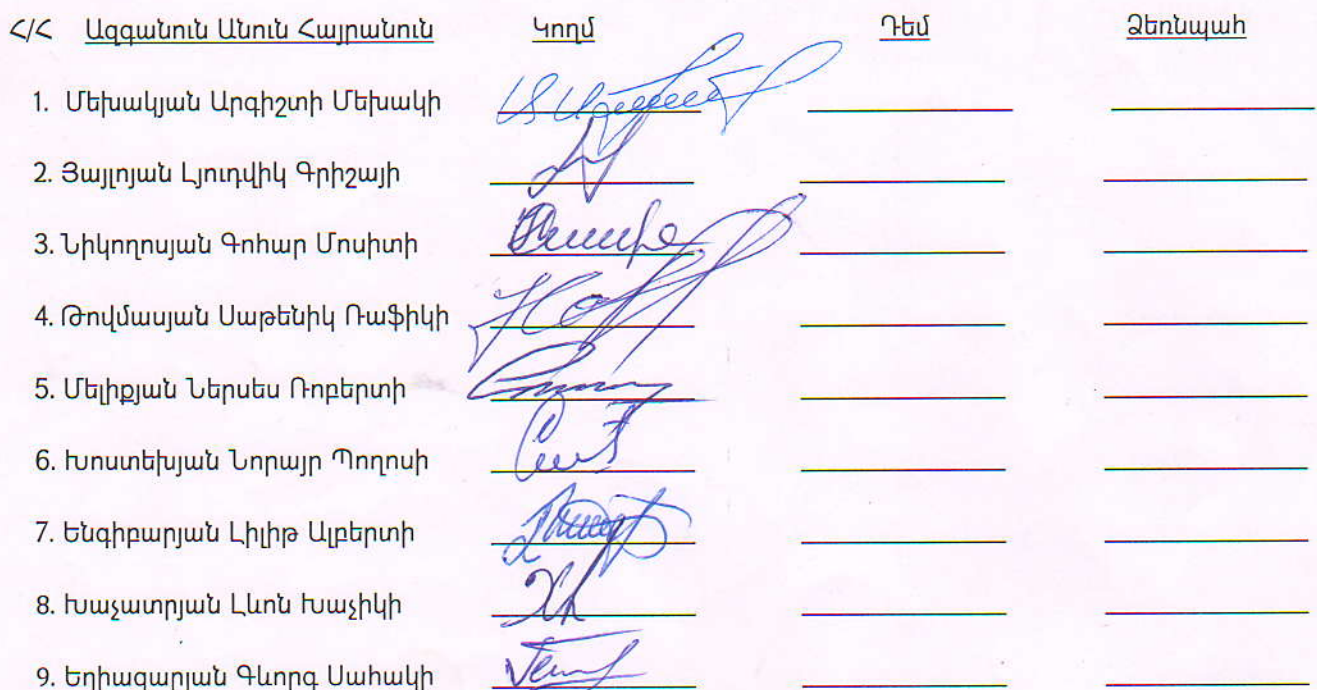 Հ/Հ Ազգանուն Անուն Հայրանուն Կողմ Դեմ Ձեռնպահ
1. Մեխակյան Արգիշտի Մեխակի
2. Յայլոյան Լյուդվիկ Գրիշայի
3. Նիկողոսյան Գոհար Մոսիտի
4. Թովմասյան Սաթենիկ Ռաֆիկի
5. Մելիքյան Ներսես Ռոբերտի
6. Խոստեխյան Նորայր Պողոսի
7. Ենգիբարյան Լիլիթ Ալբերտի
8. Խաչատրյան Լևոն Խաչիկի
9. Եղիազարյան Գևորգ Սահակի